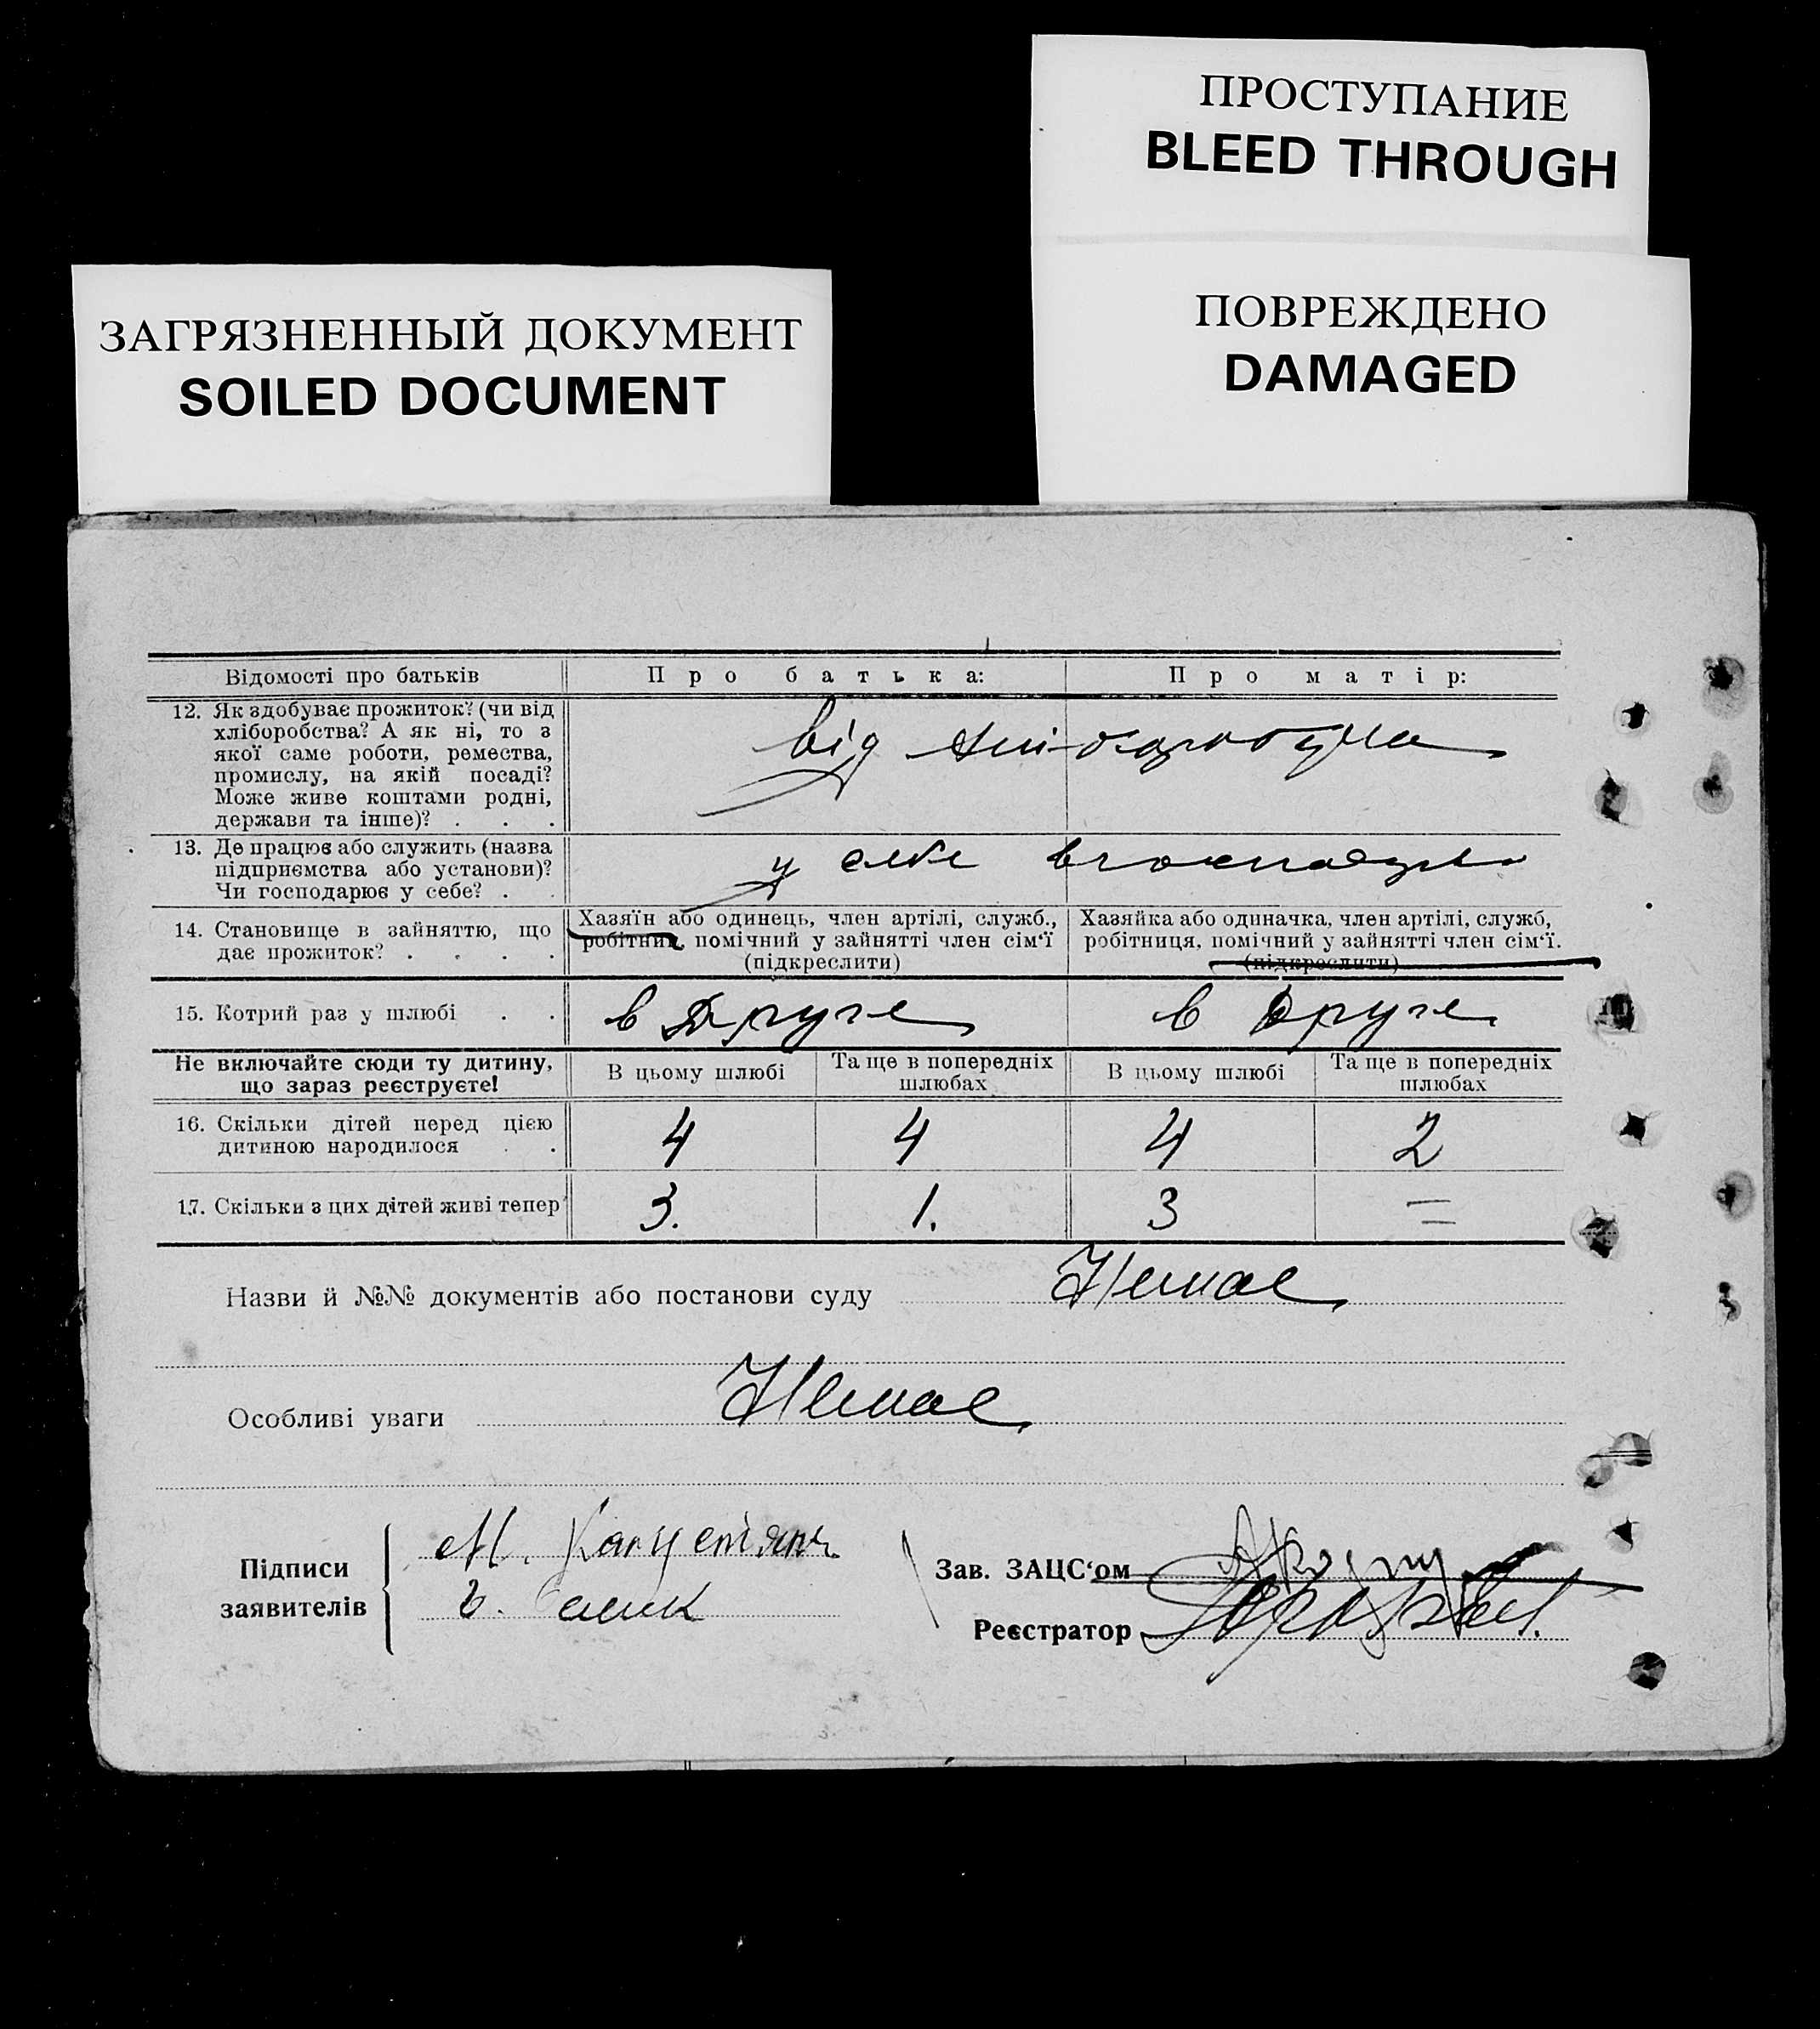 ПРОСТУПАНИЕ
BLEED THROUGH
ПОВРЕЖДЕНО
DAMAGED
ЗАГРЯЗНЕННЫЙ ДОКУМЕНТ
SOILED DOCUMENT
Відомості про батьків Про батька: Про матір:
12. Як здобуває прожиток? (чи від
хліборобства? А як ні, то з
якої саме роботи, ремества,
промислу, на якій посаді?
Може живе коштами родні,
держави та інше)? . . .
від
13. Де працює або служить (назва
підприємства або установи)?
Чи господарює у себе? . .
у себе
14. Становище в зайняттю, що
дає прожиток? . . . .
Хазяїн або одинець, член артілі, служб.,
робітник, помічний у зайнятті член сім‘ї
(підкреслити)
Хазяйка або одиначка, член артілі, служб,
робітниця, помічний у зайнятті член сім‘ї.
(підкреслити)
15. Котрий раз у шлюбі . . в друге в друге
Не включайте сюди ту дитину,
що зараз реєструєте!
В цьому шлюбі
Та ще в попередніх
шлюбах
В цьому шлюбі
Та ще в попередніх
шлюбах
16. Скільки дітей перед цією
дитиною народилося . .
4 4 4 2
17. Скільки з цих дітей живі тепер 3. 1. 3 =
Назви й №№ документів або постанови суду Немає
Особливі уваги Немає
Підписи
заявителів
М.
Зав. ЗАЦС‘ом
Реєстратор